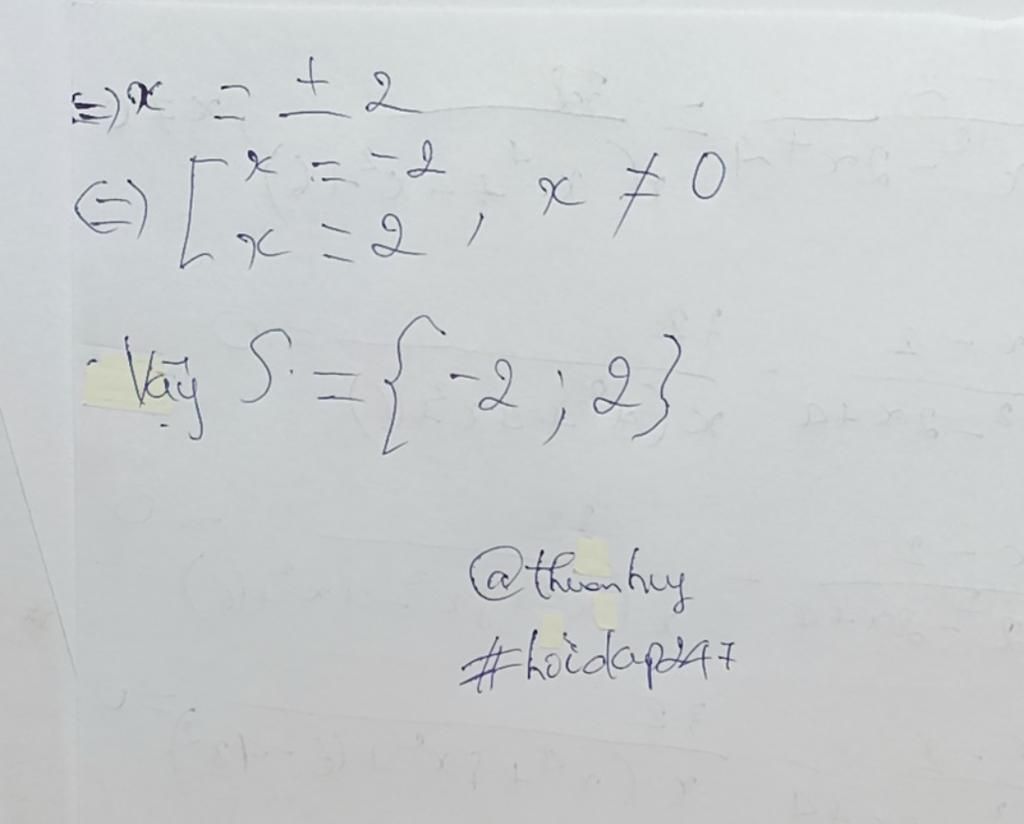 => x = ± 2
<=> [ x = -2
x = 2 , x ≠ 0
Vậy S = { -2 ; 2 }
@thuanhuy
#hoidap247